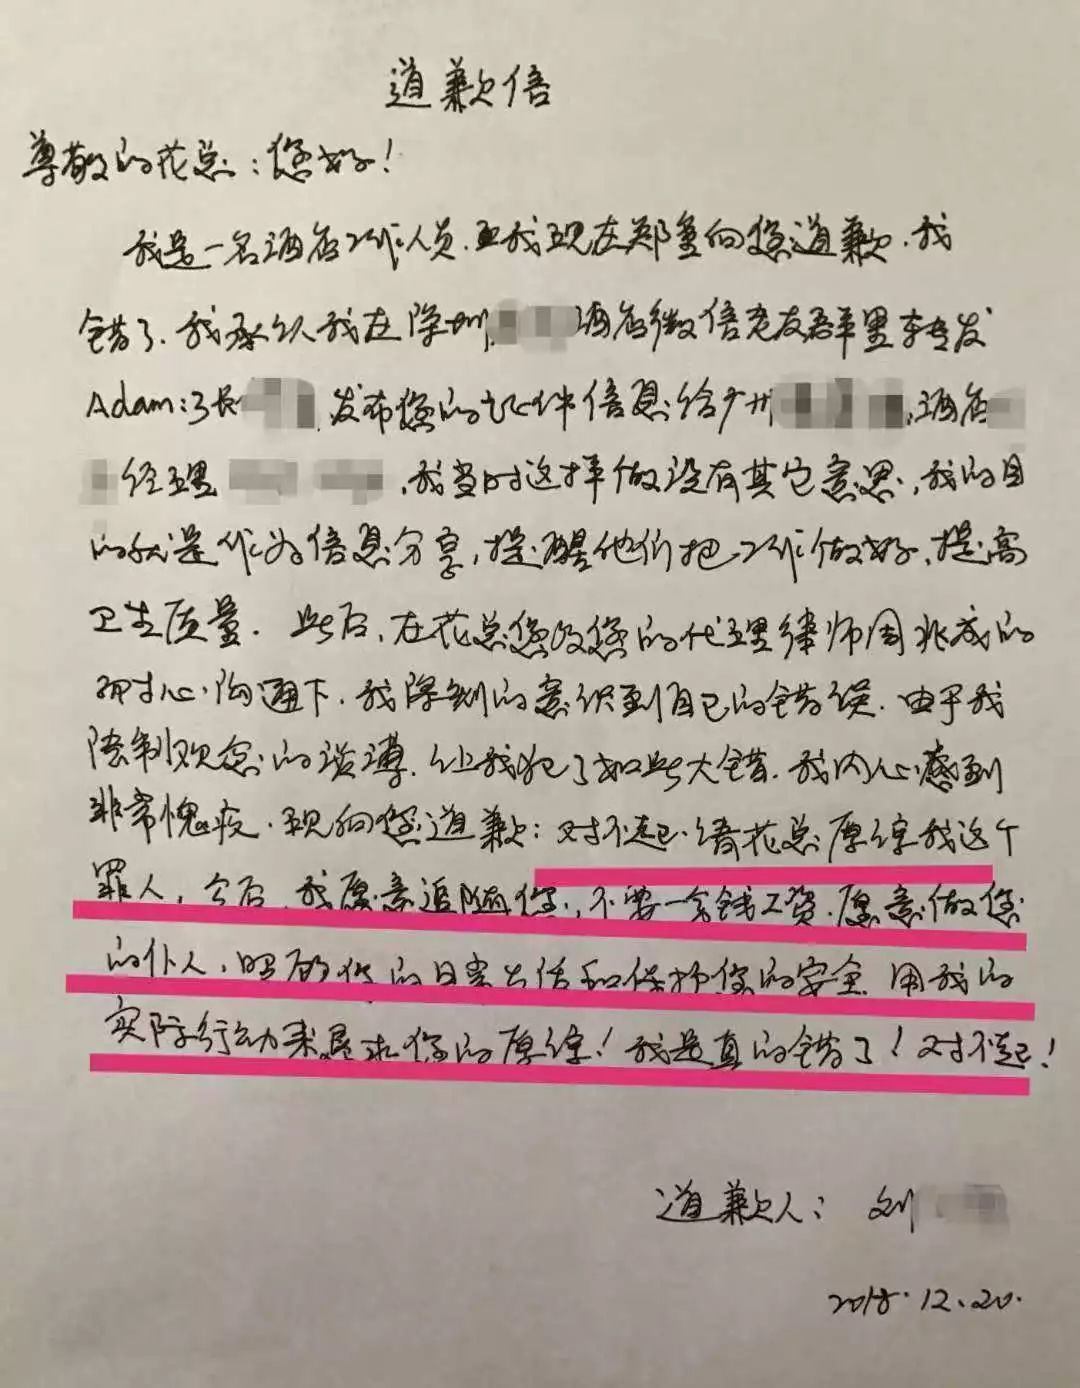 道歉信
尊敬的花总：您好！
我是一名酒店工作人员，我现在郑重向您道歉，我
错了，我承认我在深圳酒店微信老友群里转发
Adam：张发布您的证件信息给广州酒店
经理，我当时这样做没有其它意思，我的目
的就是作为信息分享，提醒他们把工作做好，提高
卫生质量．此后，在花总您及您的代理律师周兆成的
耐心沟通下，我深刻的意识到自己的错误．由于我
法制观念的淡薄，让我犯了如此大错，我内心感到
非常愧疚．现向您道歉：对不起，请花总原谅我这个
罪人，今后，我愿意追随您，不要一分钱工资，愿意做您
的仆人，照顾您的日常生活和保护您的安全，用我的
实际行动来恳求您的原谅！我是真的错了！对不起！
道歉人：刘
2018.12.20.